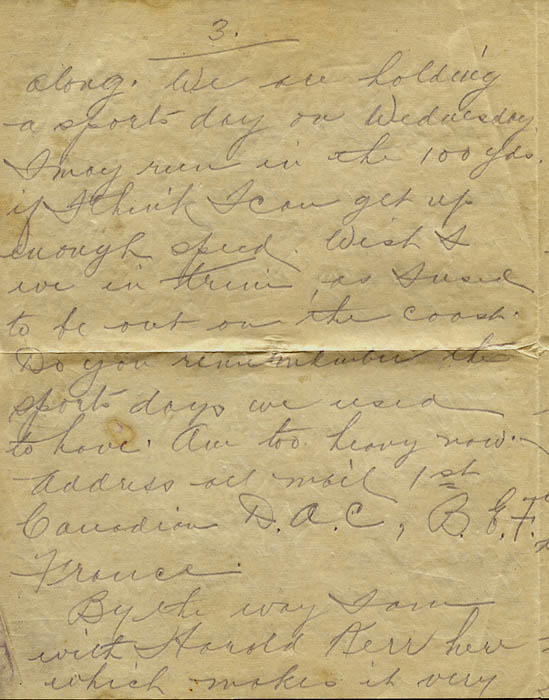 3.
along. We are holding
a sports day on Wednesday
I may run in the 100 yds.
if I think I can get up
enough speed. Wish I
we in trim as I used
to be out on the coast.
Do you remember the
sports days we used
to have. Am too heavy now.
Address all mail 1st
Canadian D.A.C, B.E.F.
France.
By the way I am
with Harold Kerr here
which makes it very